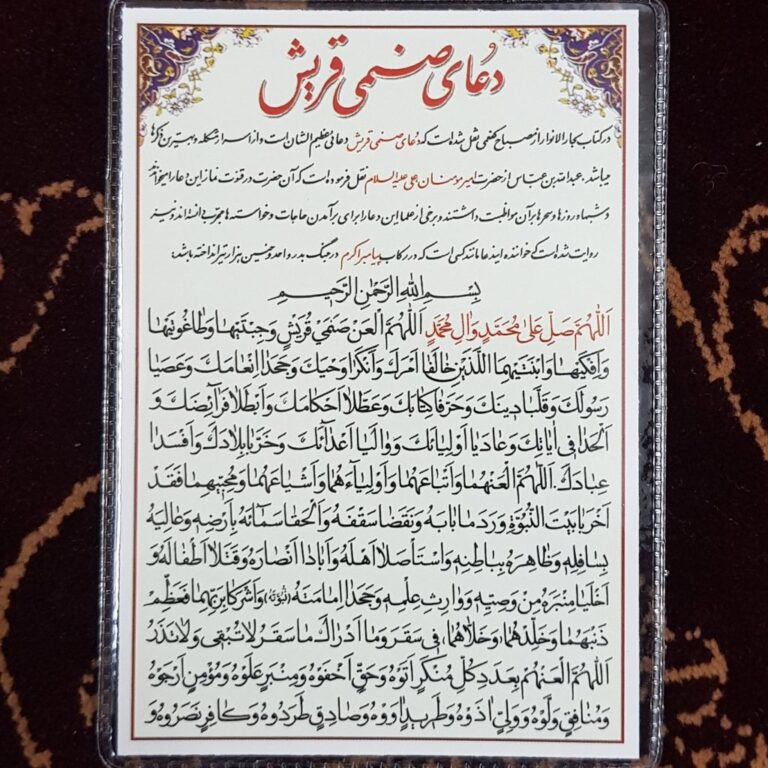 دعای صنمی قریش
در کتاب بحار الانوار از مصباح کفعمی نقل شده است که دعای صنمی قریش دعائی عظیم الشان است و از اسرار مشکله و بهترین ذکرها
میباشد. عبدالله بن عباس از حضرت امیر مومنان علی علیه السلام نقل فرموده است که آن حضرت در قنوت نماز این دعا را میخواند
و شبها و روزها و سحرها بر آن مواظبت داشتند و برخی از علما این دعا را برای برآمدن حاجات و خواسته ها مجرب دانسته اند و نیز
روایت شده است که خواننده این دعا مانند کسی است که در رکاب پیامبر اکرم در جنگ بدر و احد و حنین هزار تیر انداخته باشد.
بِسْمِ اللهِ الرَّحْمٰنِ الرَّحیمِ
اَللّٰهُمَّ صَلِّ عَلیٰ مُحَمَّدٍ وَ اٰلِ مُحَمَّدٍ اَللّٰهُمَّ الْعَنْ صَنَمَیْ قُرَیْشٍ وَ جِبْتَیْهٰا وَ طٰاغُوتَیْهٰا
وَ اِفْکَیْهٰا وَ ابْنَتَیْهِمَا اللَّذَیْنِ خٰالَفٰا اَمْرَکَ وَ اَنْکَرٰا وَحْیَکَ وَ جَحَدٰا اِنْعٰامَکَ وَ عَصَیٰا
رَسُولَکَ وَ قَلَّبٰا دینَکَ وَ حَرَّفٰا کِتٰابَکَ وَ عَطَّلاٰ اَحْکٰامَکَ وَ اَبْطَلاٰ فَرٰآئِضَکَ وَ
اَلْحَدٰا فی اٰیٰاتِکَ وَ عٰادَیٰا اَوْلِیٰائَکَ وَ وٰالَیٰا اَعْدٰآئَکَ وَ خَرَّبٰا بِلاٰدَکَ وَ اَفْسَدٰا
عِبٰادَکَ. اَللّٰهُمَّ الْعَنْهُمٰا وَ اَتْبٰاعَهُمٰا وَ اَوْلِیٰآءَهُمٰا وَ اَشْیٰاعَهُمٰا وَ مُحِبّیهِمٰا فَقَدْ
اَخْرَبٰا بَیْتَ النُّبُوَّةِ وَ رَدَمٰا بٰابَهُ وَ نَقَضٰا سَقْفَهُ وَ اَلْحَقٰا سَمٰائَهُ بِاَرْضِهِ وَ عٰالِیَهُ
بِسٰافِلِهِ وَ ظٰاهِرَهُ بِبٰاطِنِهِ وَ اسْتَأْصَلاٰ اَهْلَهُ وَ اَبٰادٰا اَنْصٰارَهُ وَ قَتَلاٰ اَطْفٰالَهُ وَ
اَخْلَیٰا مِنْبَرَهُ مِنْ وَصِیِّهِ وَ وٰارِثِ عِلْمِهِ وَ جَحَدٰا اِمٰامَتَهُ (نُبُوَّتَهُ) وَ اَشْرَکٰا بِرَبِّهِمٰا فَعَظِّمْ
ذَنْبَهُمٰا وَ خَلِّدْهُمٰا (وَ خَلاّهُمٰا) فی سَقَرَ وَ مٰا اَدْرٰاکَ مٰا سَقَرُ لاٰ تُبْقی وَ لاٰ تَذَرُ
اَللّٰهُمَّ الْعَنْهُمْ بِعَدَدِ کُلِّ مُنْکَرٍ اَتَوْهُ وَ حَقٍّ اَخْفَوْهُ وَ مِنْبَرٍ عَلَوْهُ وَ مُؤْمِنٍ اَرْجَوْهُ
وَ مُنٰافِقٍ وَلَّوْهُ وَ وَلِیٍّ اٰذَوْهُ وَ طَریدٍ اٰوَوْهُ وَ صٰادِقٍ طَرَدُوهُ وَ کٰافِرٍ نَصَرُوهُ وَ